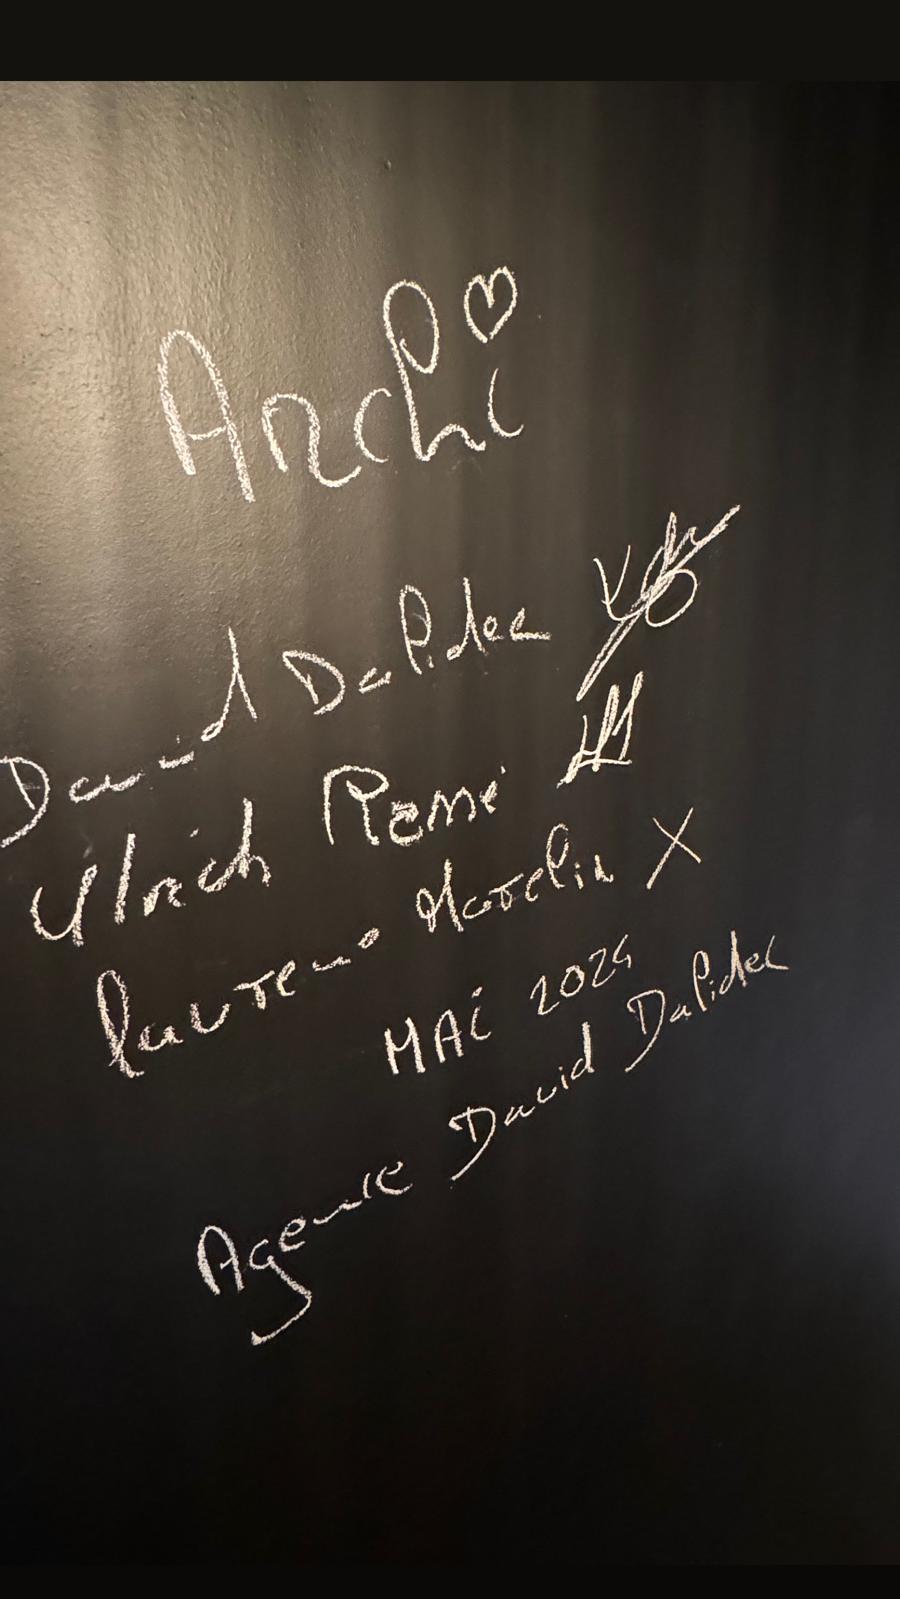 Archi
David Dalidec
Ulrich Remi
laurens Hatelin X
MAI 2024
Agence David Dalidec